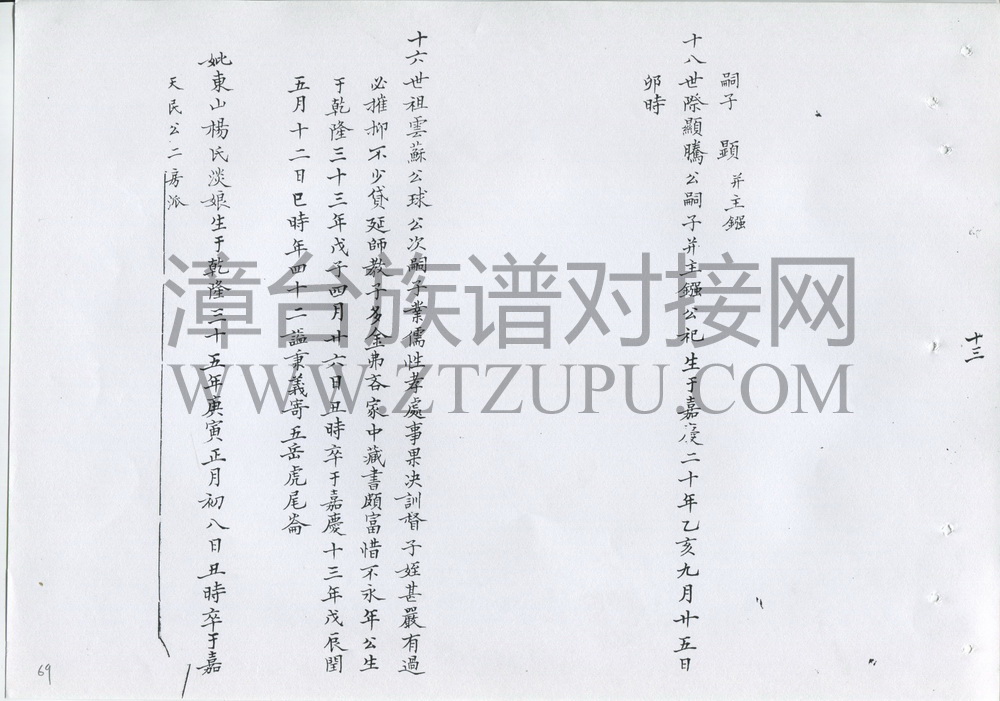 十三
嗣子 顕 并主鏹
十八世際顯騰公嗣子并主鏹公祀生于嘉慶二十年乙亥九月廿五日
卯時
十六世祖雲蘇公球公次嗣子業儒性孝處事果决訓督子姪甚嚴有過
必摧抑不少貸延師教子多金弗吝家中藏書頗富惜不永年公生
于乾隆三十三年戊子四月廿六日丑時卒于嘉慶十三年戊辰閏
五月十二日巳時年四十二謚秉義寄五岳虎尾崙
妣東山楊氏淡娘生于乾隆三十五年庚寅正月初八日丑時卒于嘉
天民公二房派
69
漳台族谱对接网
WWW.ZTZUPU.COM